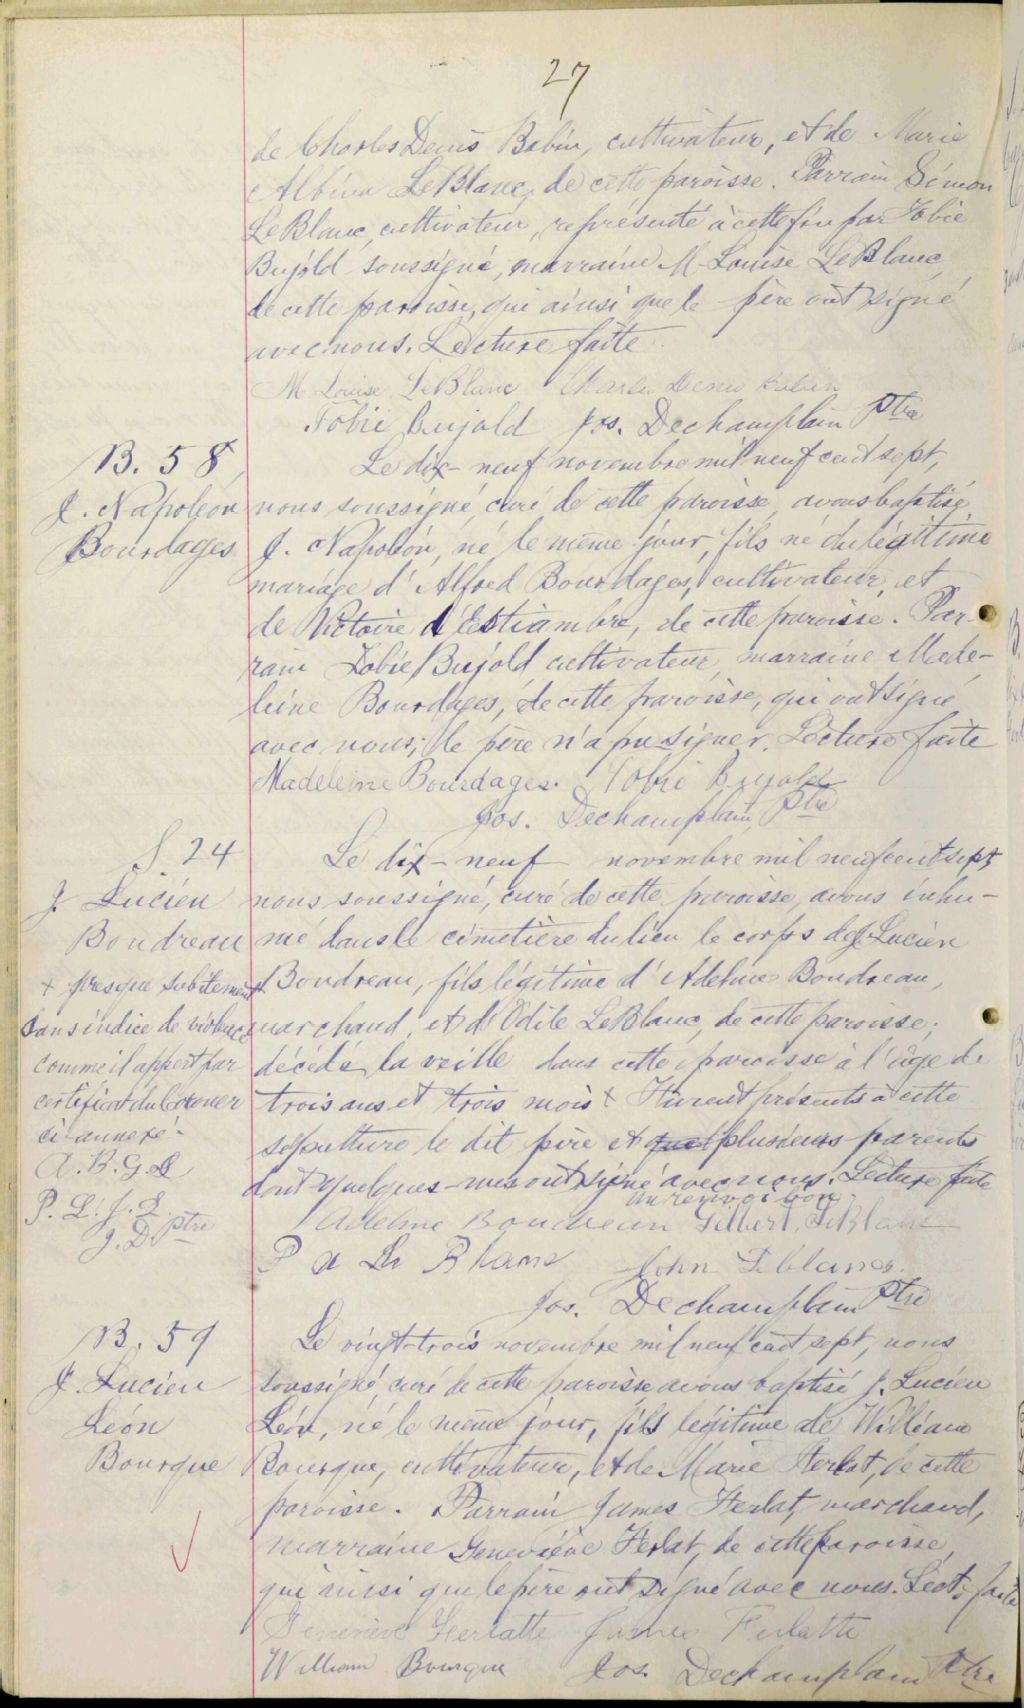 27
de Charles Denis Babin, cultivateur, et de Marie
Albina LeBlanc, de cette paroisse. Parrain Simon
LeBlanc, cultivateur, représenté à cette fin par Tobie
Bujold soussigné, marraine M-Louise LeBlanc,
de cette paroisse, qui ainsi que le père ont signé
avec nous. Lecture faite.
M Louise LeBlanc Charles Denis Babin
Tobie Bujold Jos. Dechamplain Ptre
B. 58
J. Napoléon
Bourdages
Le dix-neuf novembre mil neuf cent sept,
nous soussigné, curé de cette paroisse, avons baptisé
J. Napoléon, né le même jour, fils né du légitime
mariage d'Alfred Bourdages, cultivateur, et
de Victoire d'Estiambre, de cette paroisse. Par-
rain Tobie Bujold, cultivateur, marraine Made-
leine Bourdages, de cette paroisse, qui ont signé
avec nous; le père n'a pu signer. Lecture faite
Madeleine Bourdages. Tobie Bujold
Jos. Dechamplain, Ptre
S. 24
J. Lucien
Boudreau
Le dix-neuf novembre mil neuf cent sept,
nous soussigné, curé de cette paroisse, avons inhu-
mé dans le cimetière du lieu le corps de J. Lucien
Boudreau, fils légitime d'Adelme Boudreau,
marchand, et d'Odile LeBlanc, de cette paroisse;
décédé la veille dans cette paroisse à l'âge de
trois ans et trois mois + Furent présents à cette
sépulture le dit père et que plusieurs parents
dont quelques-uns ont signé avec nous. Lecture faite
un renvoi bon
+ presque subitement
sans indice de violence
comme il appert par
certificat du Coroner
ci-annexé.
A. B. G. L
P. L. J. L.
J. D. Ptre
Adelme Boudreau Gilbert LeBlanc
P a Le Blanc John Leblanc.
Jos. Dechamplain Ptre
B. 59
J. Lucien
Léon
Bourque
Le vingt-trois novembre mil neuf cent sept, nous
soussigné, curé de cette paroisse avons baptisé J. Lucien
Léon, né le même jour, fils légitime de William
Bourque, cultivateur, et de Marie Ferlat, de cette
paroisse. Parrain James Ferlat, marchand,
marraine Geneviève Ferlat, de cette paroisse,
qui ainsi que le père ont signé avec nous. Lect. faite
Geneviève Ferlatte James Ferlatte
William Bourque Jos. Dechamplain Ptre